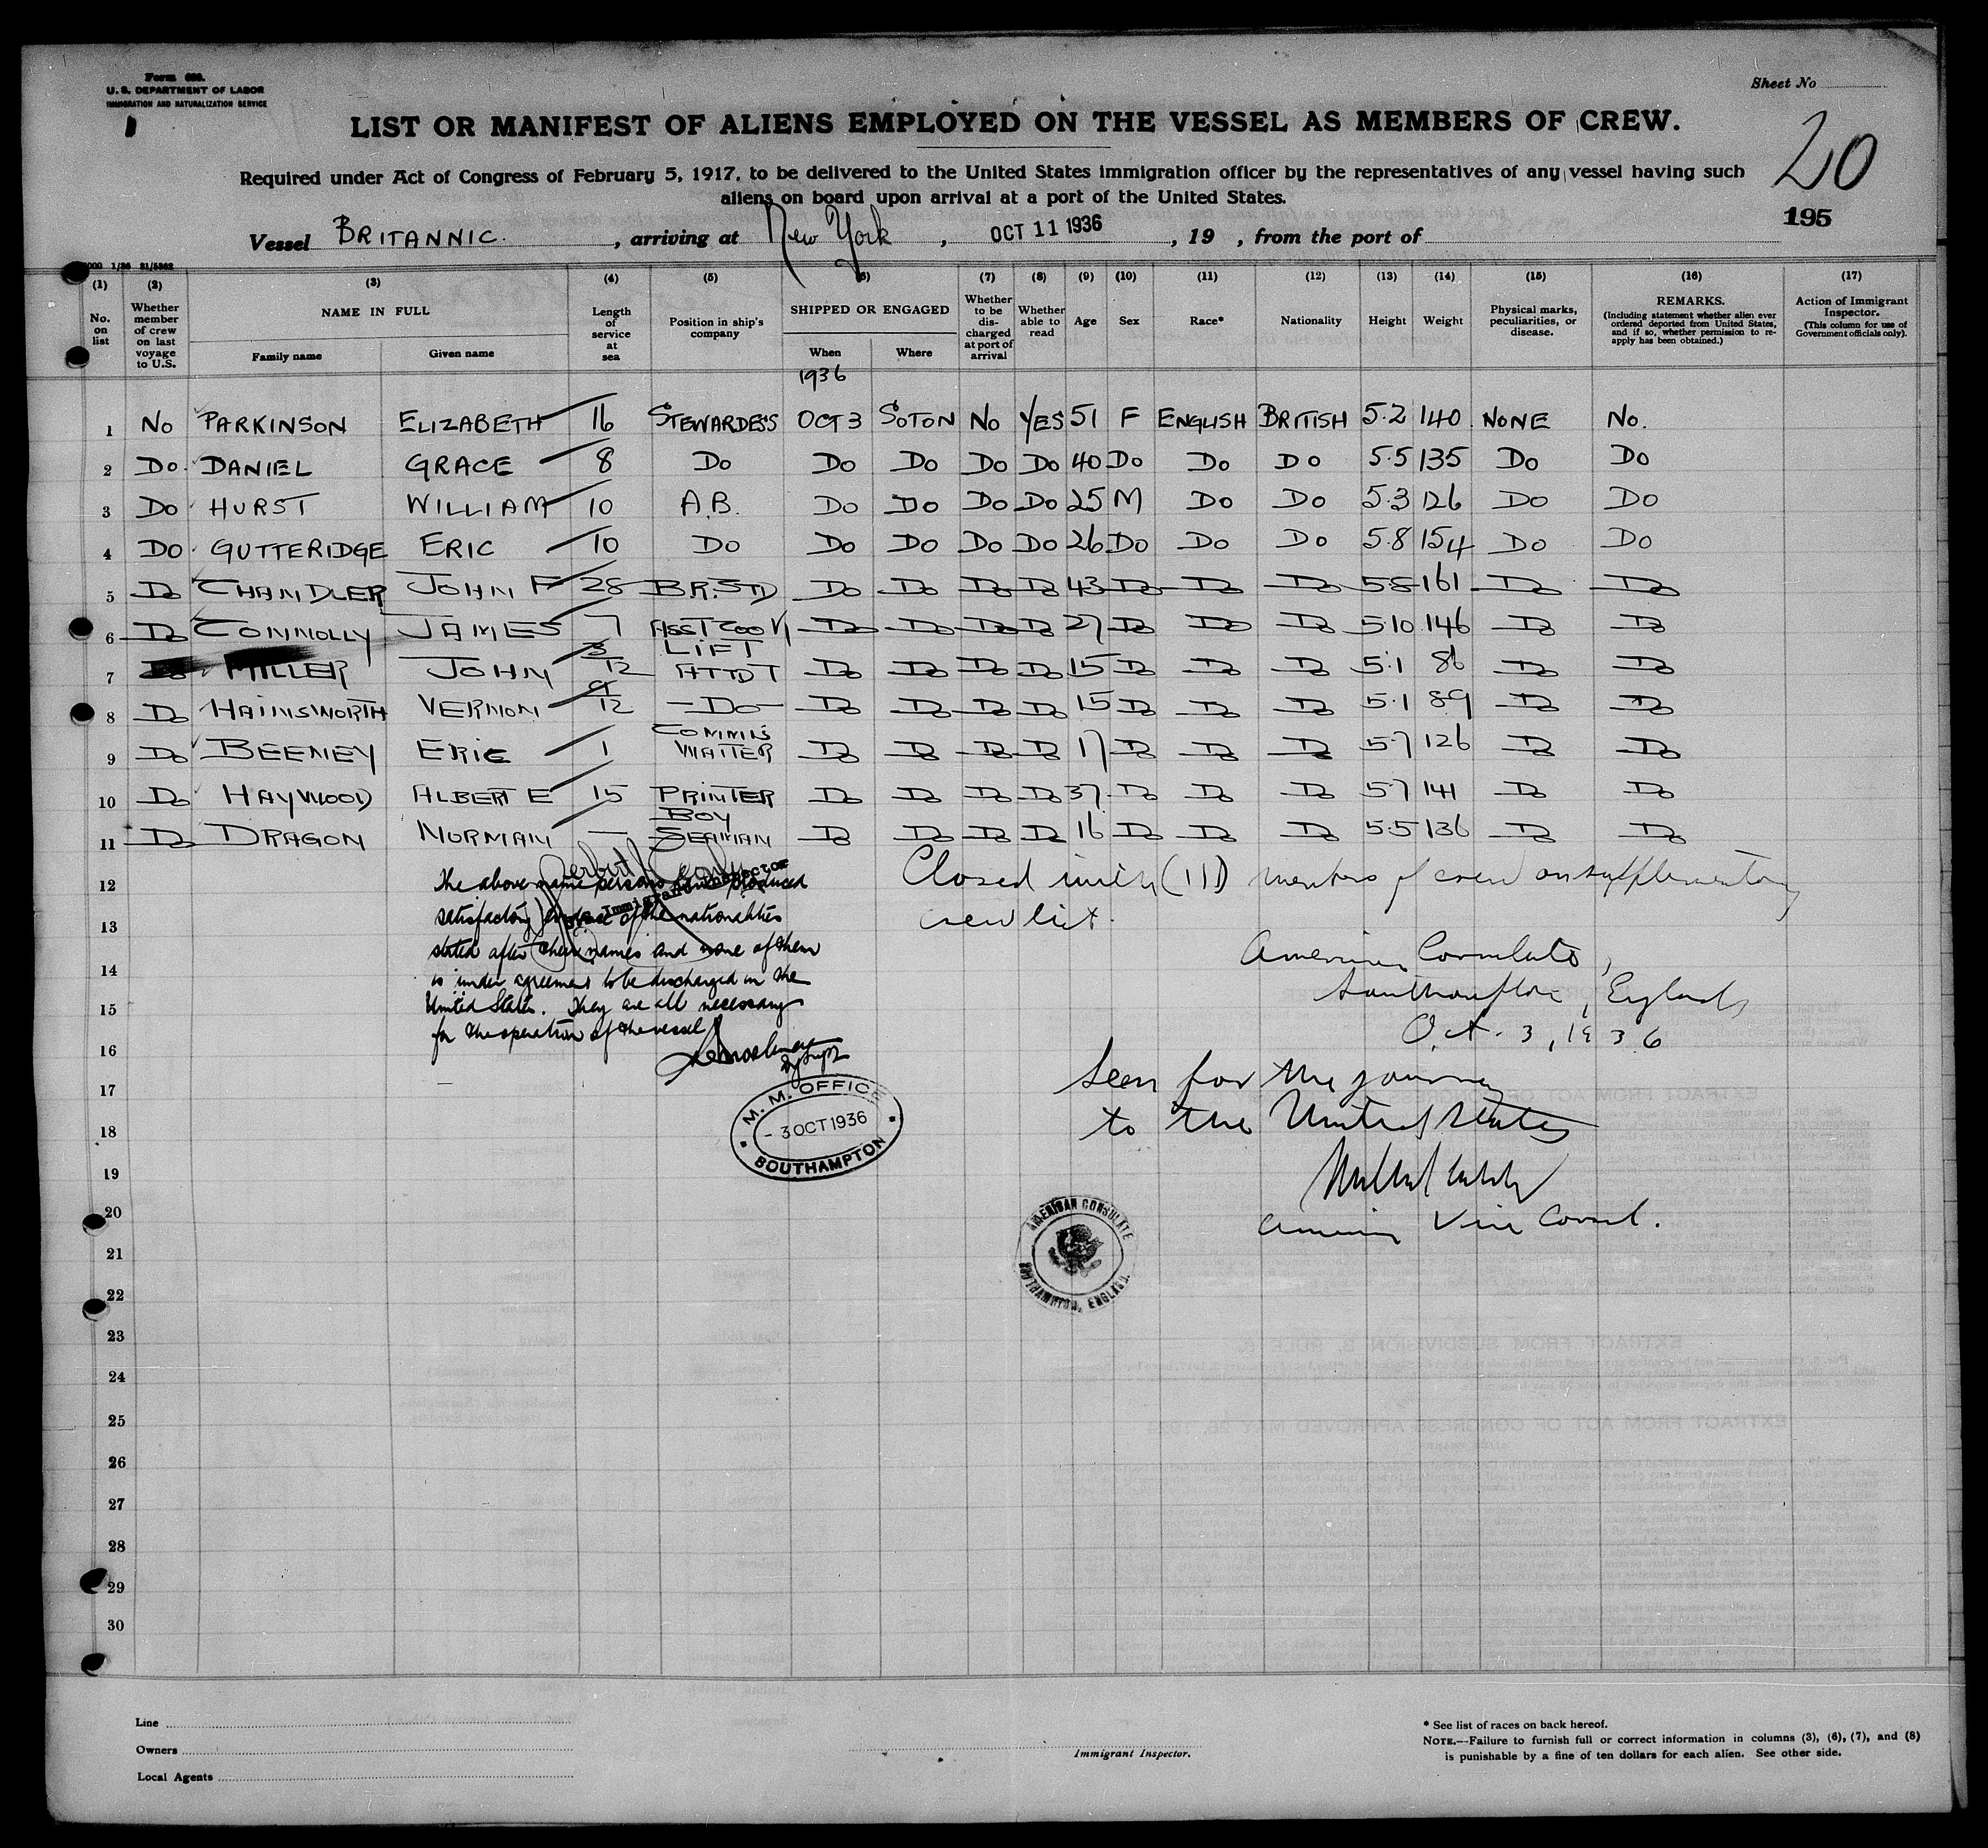 Form 689.
U. S. DEPARTMENT OF LABOR
IMMIGRATION AND NATURALIZATION SERVICE
Sheet No
LIST OR MANIFEST OF ALIENS EMPLOYED ON THE VESSEL AS MEMBERS OF CREW.
20
Required under Act of Congress of February 5, 1917, to be delivered to the United States immigration officer by the representatives of any vessel having such
aliens on board upon arrival at a port of the United States.
195
Vessel BRITANNIC. , arriving at New York , OCT 11 1936 , 19 , from the port of
(1) (2) (3) (4) (5) (6) (7) (8) (9) (10) (11) (12) (13) (14) (15) (16) (17)
No. on list
Whether member of crew on last voyage to U.S.
NAME IN FULL
Family name Given name
Length of service at sea
Position in ship's company
SHIPPED OR ENGAGED
When Where
Whether to be discharged at port of arrival
Whether able to read
Age Sex Race* Nationality Height Weight
Physical marks, peculiarities, or disease.
REMARKS.
(Including statement whether alien ever ordered deported from United States, and if so, whether permission to re-apply has been obtained.)
Action of Immigrant Inspector.
(This column for use of Government officials only).
1936
1 No PARKINSON ELIZABETH 16 STEWARDESS OCT 3 SOTON No YES 51 F ENGLISH BRITISH 5.2 140 NONE No.
2 Do. DANIEL GRACE 8 Do Do Do Do Do 40 Do Do Do 5.5 135 Do Do
3 Do HURST WILLIAM 10 A.B. Do Do Do Do 25 M Do Do 5.3 126 Do Do
4 Do GUTTERIDGE ERIC 10 Do Do Do Do Do 26 Do Do Do 5.8 154 Do Do
5 Do CHANDLER JOHN F 28 BR.STD Do Do Do Do 43 Do Do Do 5.8 161 Do Do
6 Do CONNOLLY JAMES 7 ASST COOK Do Do Do Do 27 Do Do Do 5.10 146 Do Do
7 Do MILLER JOHN 3/12 LIFT ATTDT Do Do Do Do 15 Do Do Do 5.1 86 Do Do
8 Do HAINSWORTH VERNON 9/12 Do Do Do Do Do 15 Do Do Do 5.1 89 Do Do
9 Do BEENEY ERIC 1 COMMIS WAITER Do Do Do Do 17 Do Do Do 5.7 126 Do Do
10 Do HAYWOOD ALBERT E 15 PRINTER Do Do Do Do 37 Do Do Do 5.7 141 Do Do
11 Do DRAGON NORMAN — BOY SEAMAN Do Do Do Do 16 Do Do Do 5.5 136 Do Do
12
13
14
15
16
17
18
19
20
21
22
23
24
25
26
27
28
29
30
The above name persons have produced
satisfactory evidence of the nationalities
stated after their names and none of them
is under agreement to be discharged in the
United States. They are all necessary
for the operation of the vessel
Immigrant Inspector
M. M. OFFICE
- 3 OCT 1936
SOUTHAMPTON
Closed with (11) members of crew on supplementary
crew list.
American Consulate,
Southampton, England,
Oct. 3, 1936
Seen for the journey
to the United States
American Vice Consul.
AMERICAN CONSULATE
SOUTHAMPTON, ENGLAND.
Line
Owners
Local Agents
Immigrant Inspector.
* See list of races on back hereof.
NOTE.—Failure to furnish full or correct information in columns (3), (6), (7), and (8)
is punishable by a fine of ten dollars for each alien. See other side.